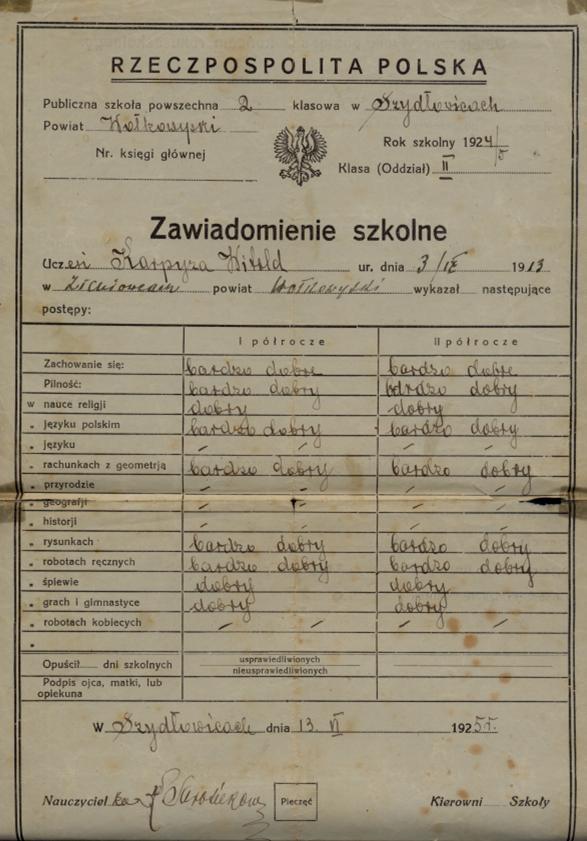 RZECZPOSPOLITA POLSKA
Publiczna szkoła powszechna 2 klasowa w Szydłowicach
Powiat Wołkowyski
Rok szkolny 1924/5
Nr. księgi głównej
Klasa (Oddział) II
Zawiadomienie szkolne
Uczeń Karpyza Witold ur. dnia 3/IX 1913
w powiat Wołkowyski wykazał następujące
postępy:
I półrocze II półrocze
Zachowanie się: bardzo dobre bardzo dobre
Pilność: bardzo dobry bardzo dobry
w nauce religji dobry dobry
„ języku polskim bardzo dobry bardzo dobry
„ języku - - - -
„ rachunkach z geometrją bardzo dobry bardzo dobry
„ przyrodzie - - - -
„ geografji - - - -
„ historji - - - -
„ rysunkach bardzo dobry bardzo dobry
„ robotach ręcznych bardzo dobry bardzo dobry
„ śpiewie dobry dobry
„ grach i gimnastyce dobry dobry
„ robotach kobiecych - - - -
„
Opuścił dni szkolnych usprawiedliwionych
nieusprawiedliwionych
Podpis ojca, matki, lub
opiekuna
W Szydłowicach dnia 13. VI 1925 r.
Nauczyciel Pieczęć Kierowni Szkoły